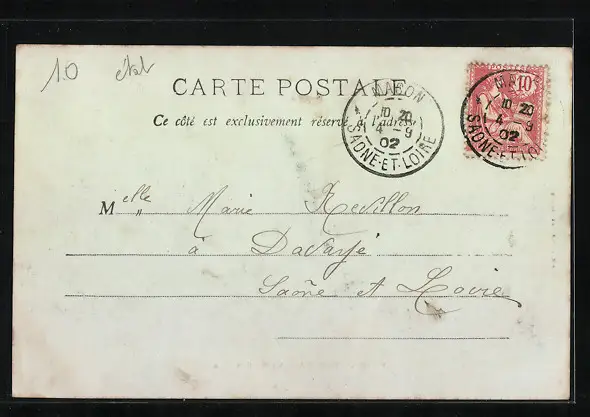 10 état
CARTE POSTALE
Ce côté est exclusivement réservé à l'adresse
MACON
10 20
14 - 9
02
SAONE-ET-LOIRE
10
MACON
10 20
14 - 9
02
SAONE-ET-LOIRE
Melle Marie Revillon
à Davayé
Saône et Loire